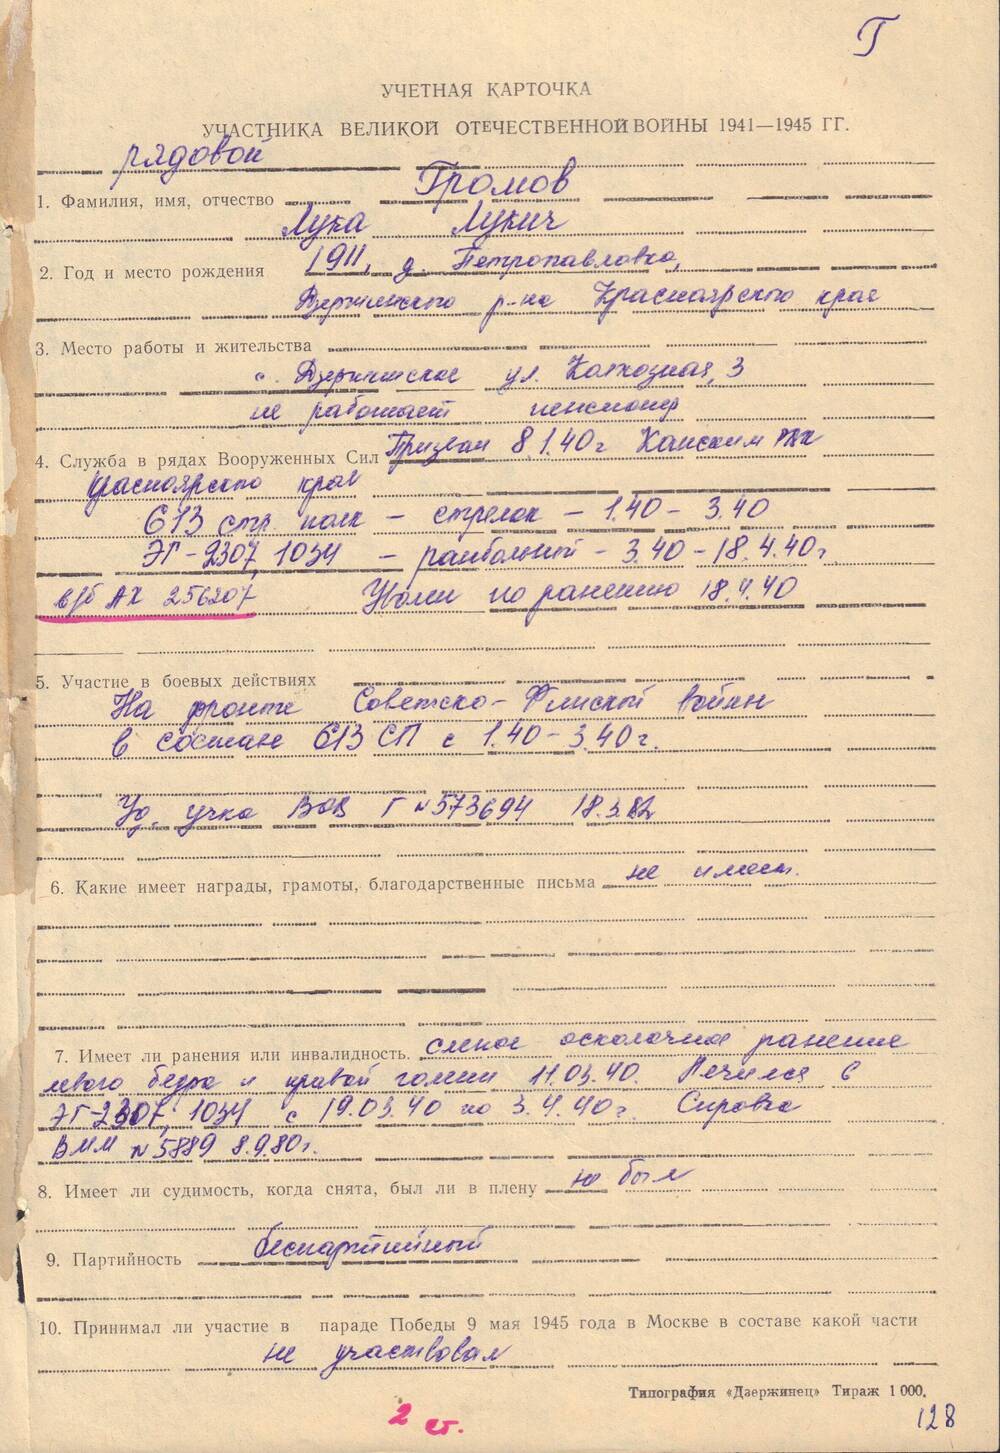 Г
УЧЕТНАЯ КАРТОЧКА
УЧАСТНИКА ВЕЛИКОЙ ОТЕЧЕСТВЕННОЙ ВОЙНЫ 1941—1945 ГГ.
рядовой
1. Фамилия, имя, отчество Громов
Лука Лукич
2. Год и место рождения 1911, д. Петропавловка,
Дзержинского р-на Красноярского края
3. Место работы и жительства
с. Дзержинское ул. Колхозная, 3
не работает пенсионер
4. Служба в рядах Вооруженных Сил Призван 8.1.40г Канским РВК
Красноярского края
613 стр. полк – стрелок – 1.40 – 3.40
ЭГ – 2307, 1034 – ранбольной – 3.40 – 18.4.40г.
в/б АХ 256207 Уволен по ранению 18.4.40
5. Участие в боевых действиях
На фронте Советско-Финской войны
в составе 613 СП с 1.40 – 3.40г.
Уд. уч-ка ВОВ Г №573694 18.3.82
6. Какие имеет награды, грамоты, благодарственные письма не имеет.
7. Имеет ли ранения или инвалидность. слепое осколочное ранение
левого бедра и правой голени 11.03.40. Лечился в
ЭГ-2307, 1034 с 19.03.40 по 3.4.40г. Справка
ВММ №5889 8.9.80г.
8. Имеет ли судимость, когда снята, был ли в плену не был
9. Партийность беспартийный
10. Принимал ли участие в параде Победы 9 мая 1945 года в Москве в составе какой части
не участвовал
Типография «Дзержинец» Тираж 1 000.
2 ст.
128